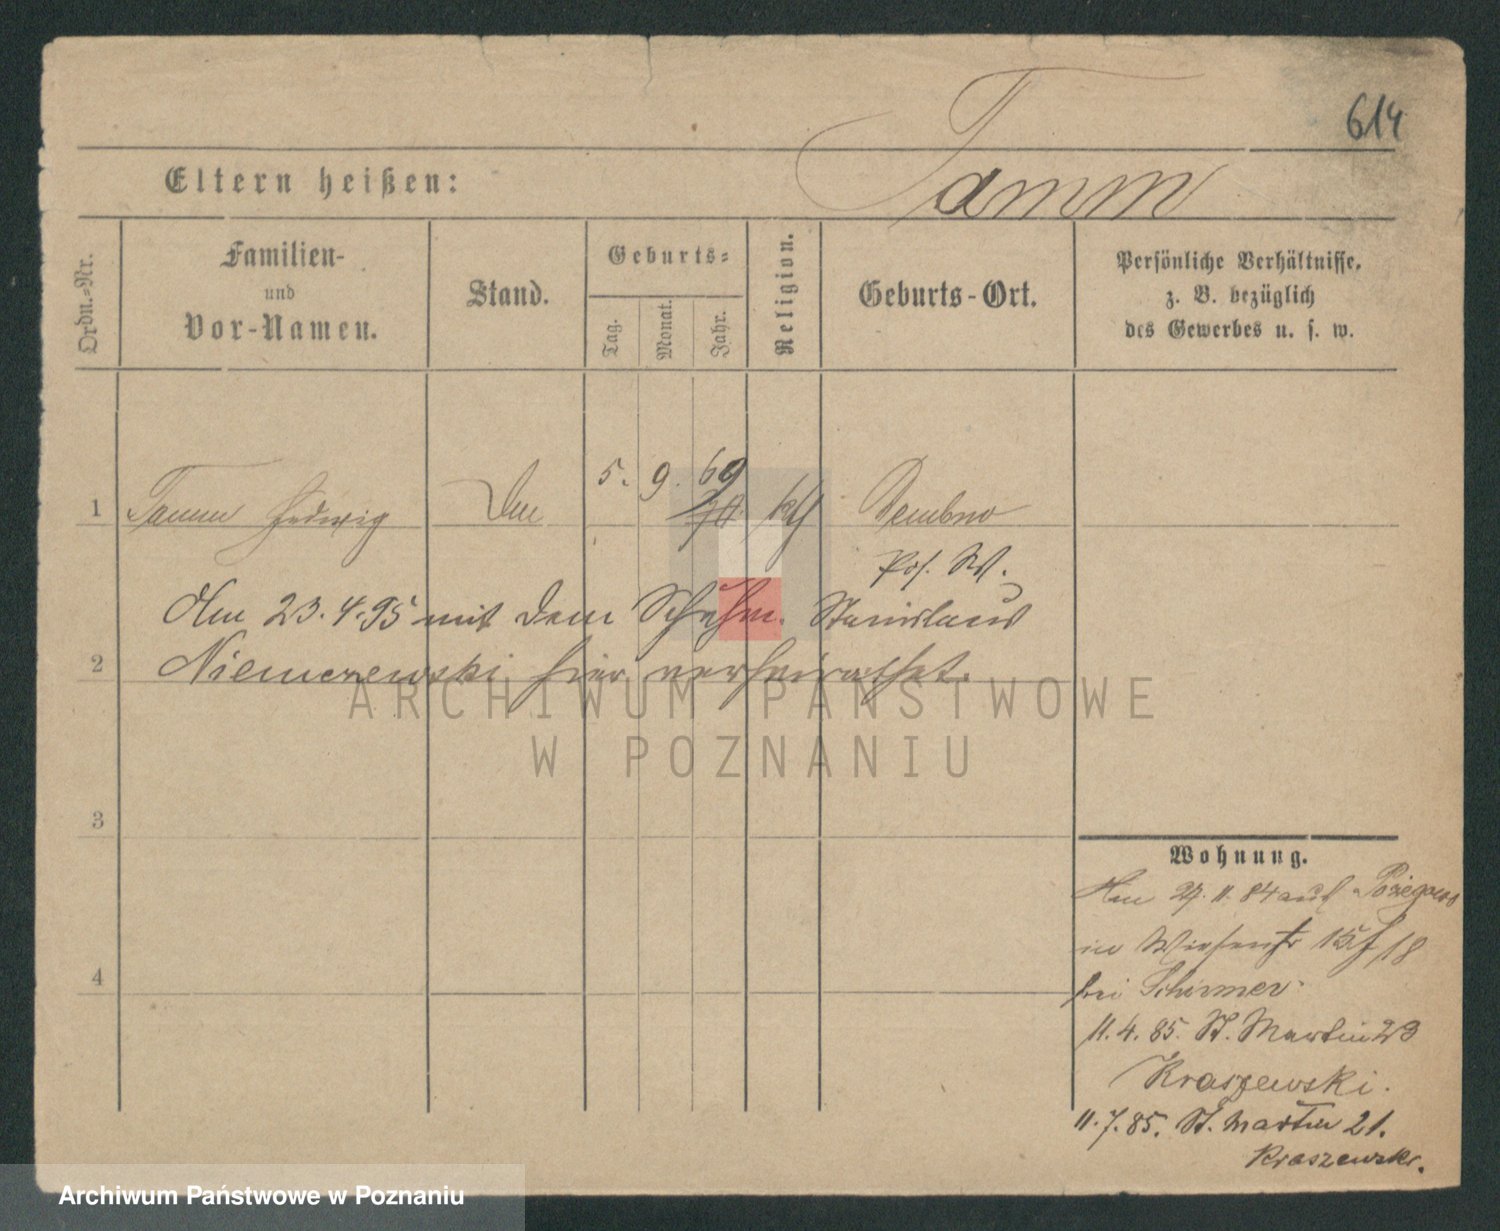 614
Tamm
Eltern heißen:
Ordn.-Nr.
Familien-
und
Vor-Namen.
Stand.
Geburts-
Tag.
Monat.
Jahr.
Religion.
Geburts-Ort.
Persönliche Verhältnisse,
z. B. bezüglich
des Gewerbes u. s. w.
1 Tamm Hedwig 5. 9. 69 70 kth Dembno
Am 23.4.95 mit dem Schuhm. Stanislaus
2 Niemczewski hier verheirathet.
3
4
Wohnung.
Am 27. 11. 84 aus Pożegowo
in Wiesenstr
bei Schirmer
11. 4. 85. St. Martin 23
Kraszewski.
11. 7. 85. St. Martin 21.
Kraszewski.
ARCHIWUM PAŃSTWOWE
W POZNANIU
Archiwum Państwowe w Poznaniu